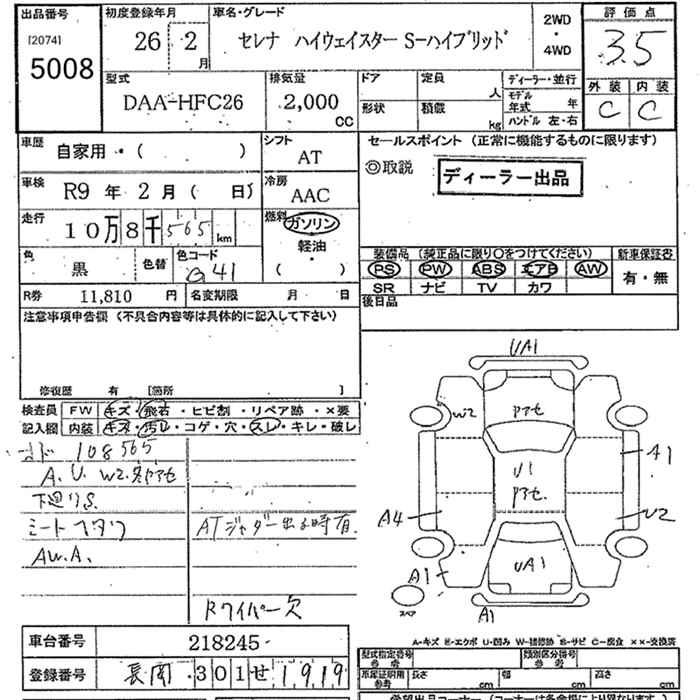 出品番号 初度登録年月 車名・グレード 2WD ・ 4WD 評価点
[2074] 5008 26 2 月 セレナ ハイウェイスター S-ハイブリッド 3.5
型式 排気量 ドア 定員 人 ディーラー・並行 外装 内装
DAA-HFC26 2,000 CC 形状 積載 kg モデル年式 年 C C
ハンドル 左・右
車歴 自家用 ・ ( ) シフト AT セールスポイント (正常に機能するものに限ります)
◎取説 ディーラー出品
車検 R9 年 2 月 ( 日) 冷房 AAC
走行 10万8千565 km 燃料 ガソリン
軽油
・
( )
色 黒 色替 色コード G41 装備品 (純正品に限り○をつけてください) 新車保証書
PS PW ABS エアB AW 有・無
SR ナビ TV カワ
R券 11,810 円 名変期限 月 日 後日品
注意事項申告欄 (不具合内容等は具体的に記入して下さい)
修復歴 有 [箇所 ]
検査員 FW キズ・飛石・ヒビ割・リペア跡・×要
記入欄 内装 キズ・汚レ・コゲ・穴・スレ・キレ・破レ
108565
A.U.W2.
下廻りS.
AW.A.
ATジャダー出る時有.
Rワイパー欠
UA1
W2
アセ
A1
U1
アセ.
A4
U2
UA1
A1
スペア
A1
A-キズ E-エクボ U-凹み W-補修跡 S-サビ C-腐食 ××-交換済
車台番号 218245 型式指定番号 参考 類別区分番号 参考
登録番号 長岡 301 せ 1919 車庫証明用 参考 長さ cm 幅 cm 高さ cm